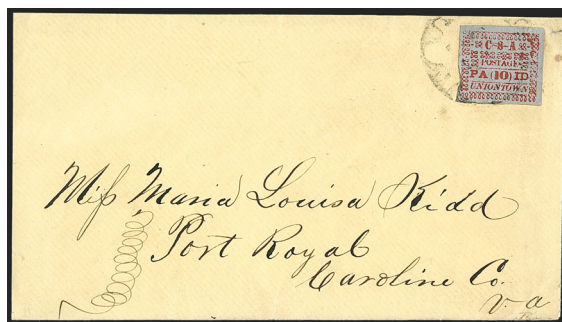 C-S-A
POSTAGE
PA (10) ID
UNIONTOWN
Miss Maria Louisa Kidd
Port Royal
Caroline Co.
Va